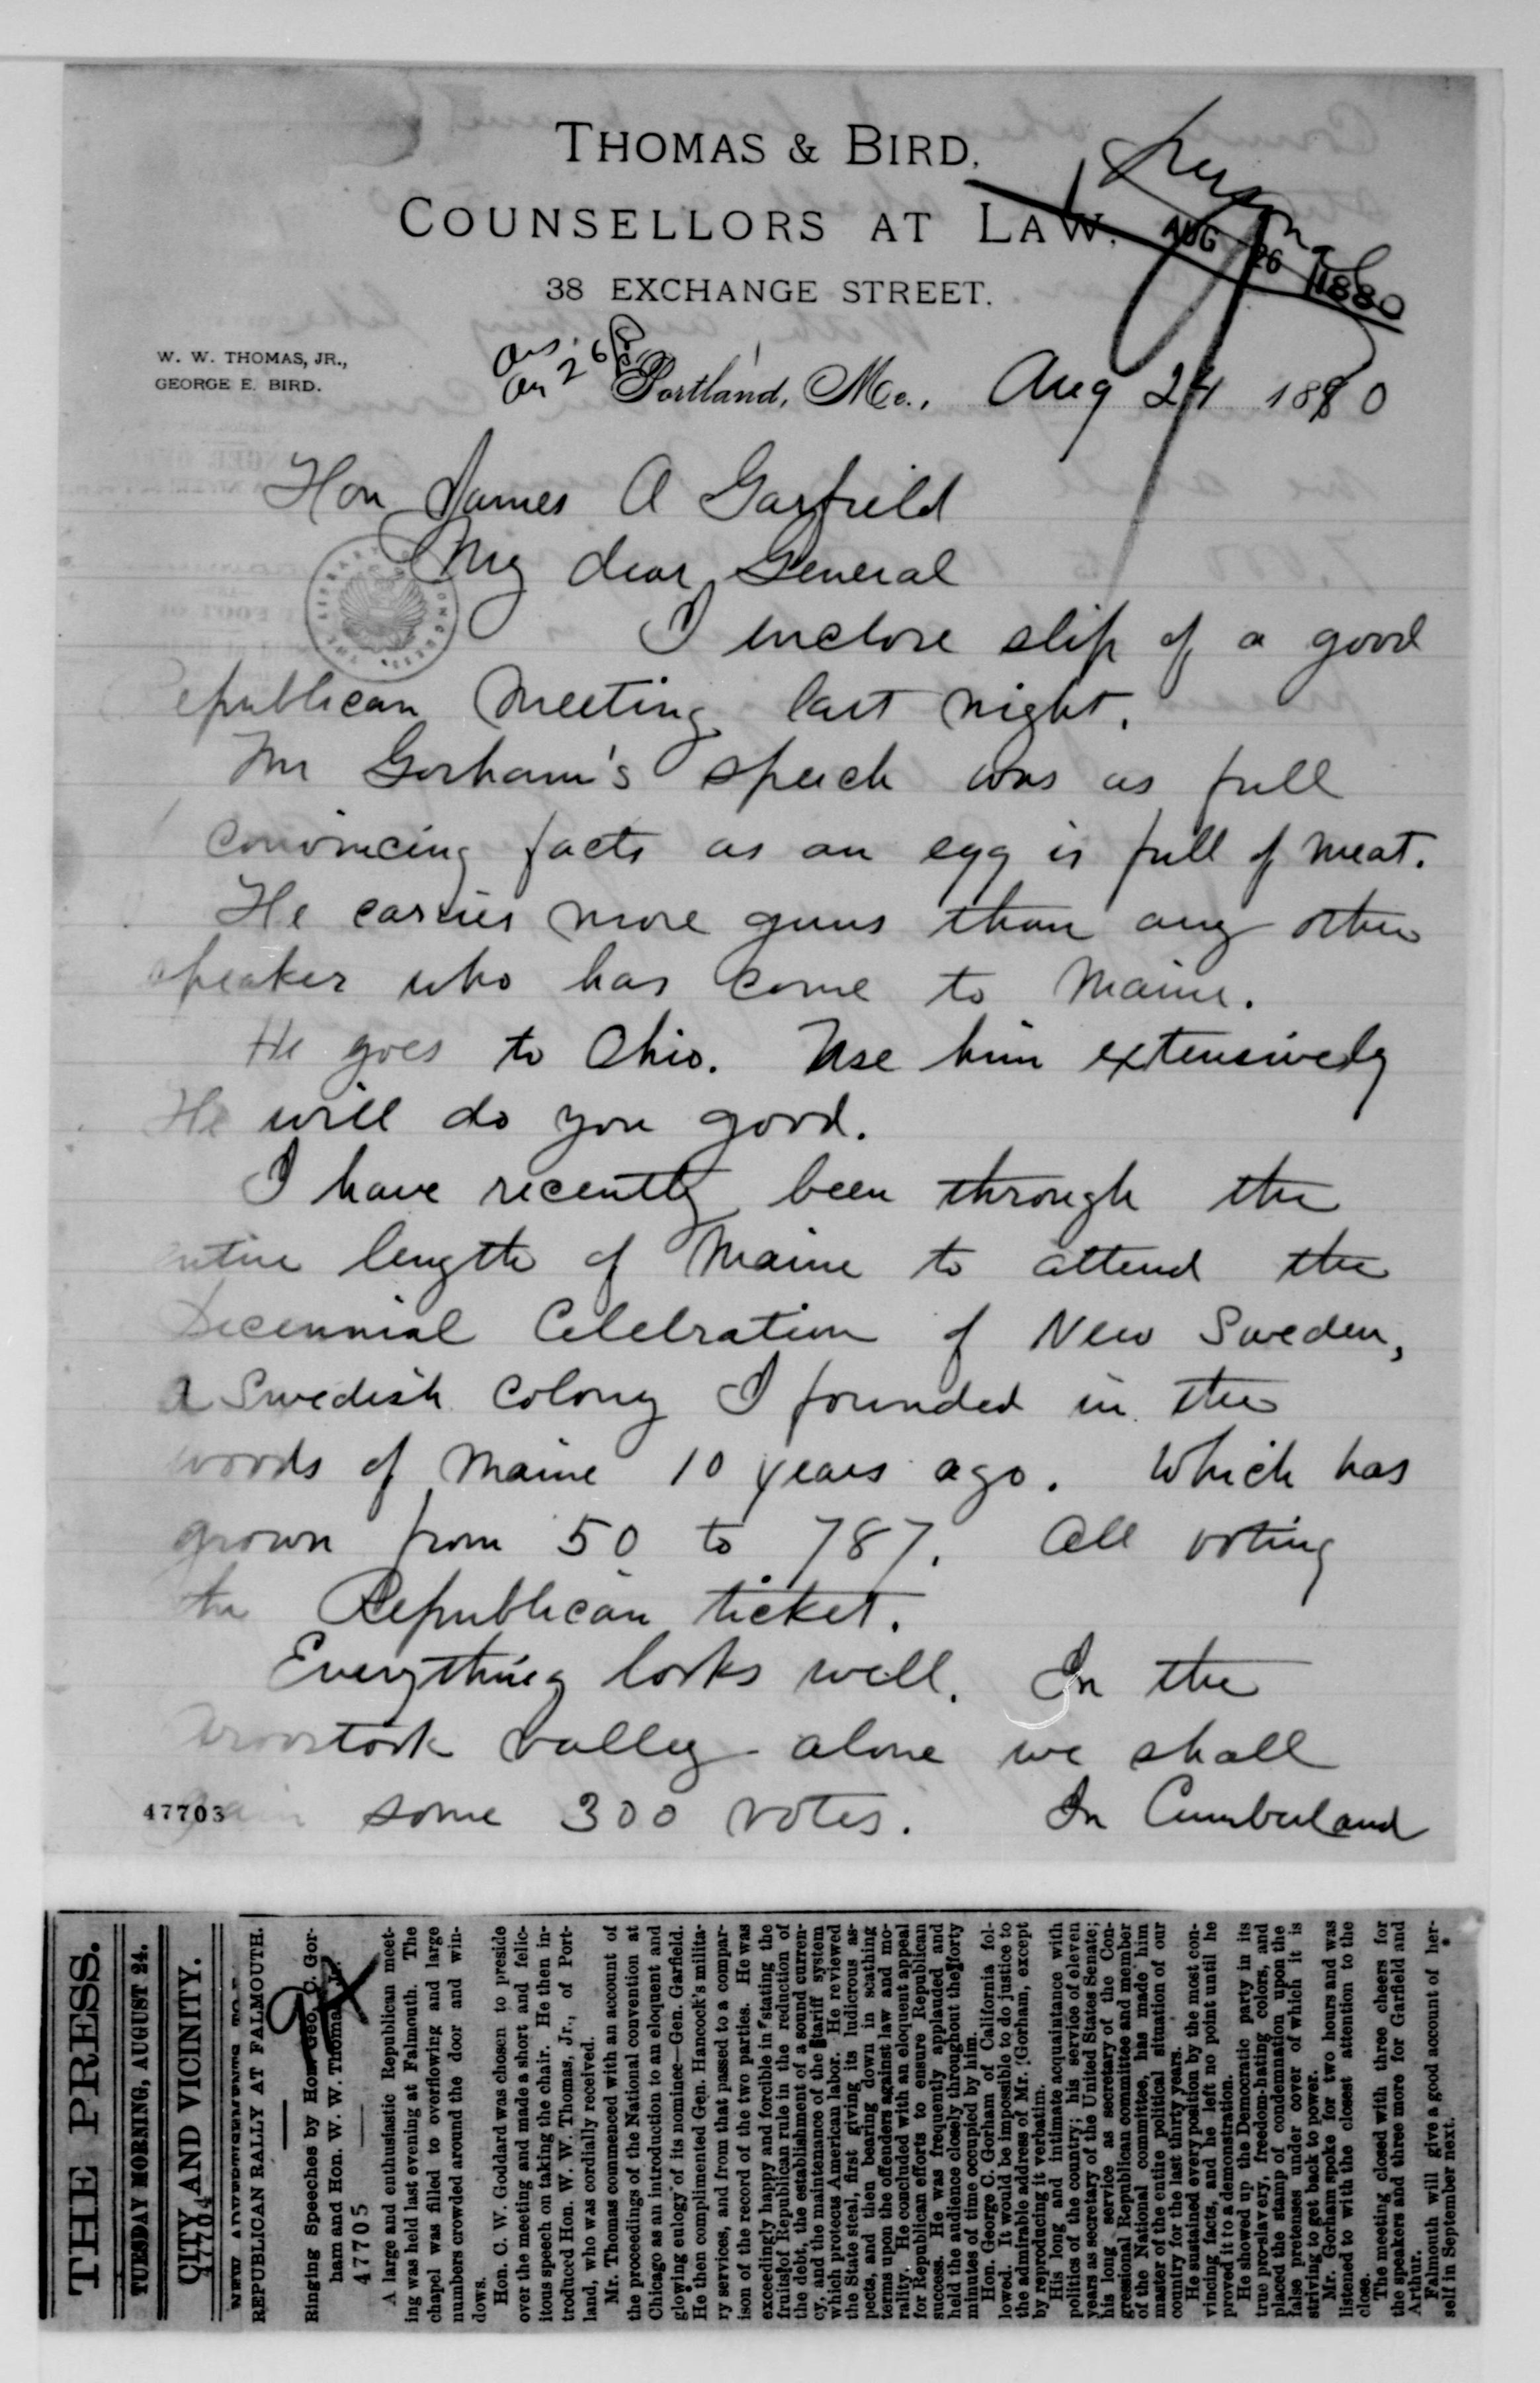 THOMAS & BIRD.
COUNSELLORS AT LAW.
38 EXCHANGE STREET.
AUG 26 1880
W. W. THOMAS, JR.,
GEORGE E. BIRD.
Ans.
Aug 26
Portland, Me., Aug 24 1880
Hon James A Garfield
My dear General
I inclose slip of a good
epublican meeting last night.
Mr Gorham's speech was as full
convincing facts as an egg is full of meat.
He carries more guns than any other
speaker who has come to Maine.
He goes to Ohio. Use him extensively
He will do you good.
I have recently been through the
entire length of Maine to attend the
Decennial Celebration of New Sweden,
a Swedish colony I founded in the
woods of Maine 10 years ago. Which has
grown from 50 to 787. All voting
the Republican ticket.
Everything looks well. In the
Aroostook valley alone we shall
gain some 300 votes. In Cumberland
47703
THE PRESS.
TUESDAY MORNING, AUGUST 24.
CITY AND VICINITY.
47704
NEW ADVERTISEMENTS TO-D
REPUBLICAN RALLY AT FALMOUTH.
Ringing Speeches by Hon. Geo. C. Gor-
ham and Hon. W. W. Thomas, Jr.
47705
A large and enthusiastic Republican meet-
ing was held last evening at Falmouth. The
chapel was filled to overflowing and large
numbers crowded around the door and win-
dows.
Hon. C. W. Goddard was chosen to preside
over the meeting and made a short and felic-
itous speech on taking the chair. He then in-
troduced Hon. W. W. Thomas, Jr., of Port-
land, who was cordially received.
Mr. Thomas commenced with an account of
the proceedings of the National convention at
Chicago as an introduction to an eloquent and
glowing eulogy of its nominee—Gen. Garfield.
He then complimented Gen. Hancock's milita-
ry services, and from that passed to a compar-
ison of the record of the two parties. He was
exceedingly happy and forcible in stating the
fruits of Republican rule in the reduction of
the debt, the establishment of a sound curren-
cy, and the maintenance of the tariff system
which protects American labor. He reviewed
the State steal, first giving its ludicrous as-
pects, and then bearing down in scathing
terms upon the offenders against law and mo-
rality. He concluded with an eloquent appeal
for Republican efforts to ensure Republican
success. He was frequently applauded and
held the audience closely throughout the forty
minutes of time occupied by him.
Hon. George C. Gorham of California fol-
lowed. It would be impossible to do justice to
the admirable address of Mr. Gorham, except
by reproducing it verbatim.
His long and intimate acquaintance with
politics of the country; his service of eleven
years as secretary of the United States Senate;
his long service as secretary of the Con-
gressional Republican committee and member
of the National committee, has made him
master of the entire political situation of our
country for the last thirty years.
He sustained every position by the most con-
vincing facts, and he left no point until he
proved it to a demonstration.
He showed up the Democratic party in its
true pro-slavery, freedom-hating colors, and
placed the stamp of condemnation upon the
false pretenses under cover of which it is
striving to get back to power.
Mr. Gorham spoke for two hours and was
listened to with the closest attention to the
close.
The meeting closed with three cheers for
the speakers and three more for Garfield and
Arthur.
Falmouth will give a good account of her-
self in September next.